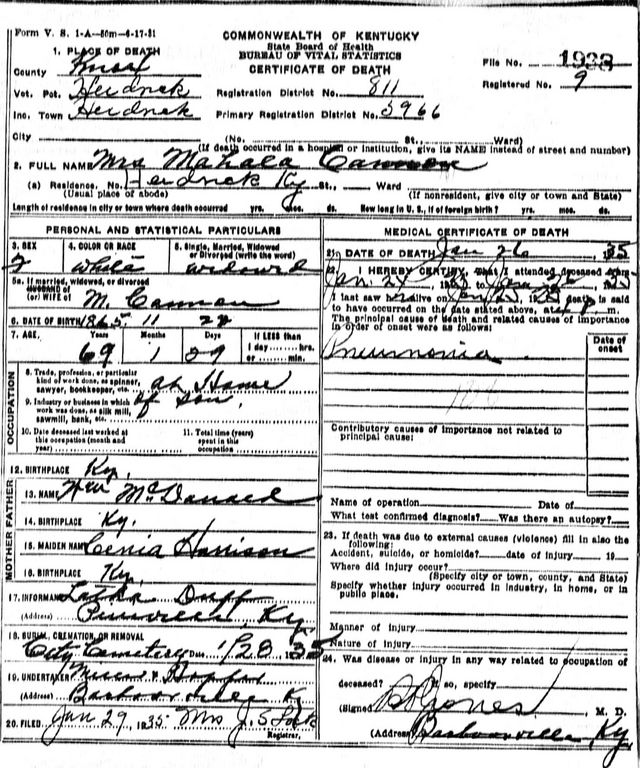 Form V. S. 1-A—50m—6-17-31
COMMONWEALTH OF KENTUCKY
State Board of Health
BUREAU OF VITAL STATISTICS
CERTIFICATE OF DEATH
File No. 1938
Registered No. 9
1. PLACE OF DEATH
County Knox
Vot. Pct. Heidrick
Registration District No. 811
Inc. Town Heidrick
Primary Registration District No. 5966
City (No. St., Ward)
(If death occurred in a hospital or institution, give its NAME instead of street and number)
2. FULL NAME Mrs Mahala Cannon
(a) Residence. No. Heidrick Ky St., Ward
(Usual place of abode) (If nonresident, give city or town and State)
Length of residence in city or town where death occurred yrs. mos. ds. How long in U. S., if of foreign birth? yrs. mos. ds.
PERSONAL AND STATISTICAL PARTICULARS
3. SEX 4. COLOR OR RACE 5. Single, Married, Widowed
or Divorced (write the word)
F white widowed
5a. If married, widowed, or divorced
HUSBAND of
(or) WIFE of M. Cannon
6. DATE OF BIRTH 1865 11 28
7. AGE, Years Months Days If LESS than
69 1 29 1 day hrs.
or min.
OCCUPATION
8. Trade, profession, or particular
kind of work done, as spinner,
sawyer, bookkeeper, etc. at Home
9. Industry or business in which
work was done, as silk mill,
sawmill, bank, etc. of son.
10. Date deceased last worked at
this occupation (month and
year)
11. Total time (years)
spent in this
occupation
12. BIRTHPLACE Ky.
FATHER
13. NAME Wm McDonald
14. BIRTHPLACE Ky.
MOTHER
15. MAIDEN NAME Cenia Harrison
16. BIRTHPLACE Ky.
17. INFORMANT
(Address) Pineville, Ky
18. BURIAL, CREMATION, OR REMOVAL
City Cemetery Date 1/28 1935
19. UNDERTAKER
(Address) Barbourville Ky
20. FILED Jan 29 1935 Mrs J. S.
Registrar.
MEDICAL CERTIFICATE OF DEATH
21. DATE OF DEATH Jan 26 1935
22. I HEREBY CERTIFY, That I attended deceased from
Jan. 1935 to Jan 1935
I last saw her alive on Jan 25, 1935 death is said
to have occurred on the date stated above, at m.
The principal cause of death and related causes of importance
in order of onset were as follows:
Date of
onset
Pneumonia
Contributory causes of importance not related to
principal cause:
Name of operation Date of
What test confirmed diagnosis? Was there an autopsy?
23. If death was due to external causes (violence) fill in also the
following:
Accident, suicide, or homicide? date of injury 19
Where did injury occur?
(Specify city or town, county, and State)
Specify whether injury occurred in industry, in home, or in
public place.
Manner of injury
Nature of injury
24. Was disease or injury in any way related to occupation of
deceased? If so, specify
(Signed) Jones M. D.
(Address) Barbourville Ky.